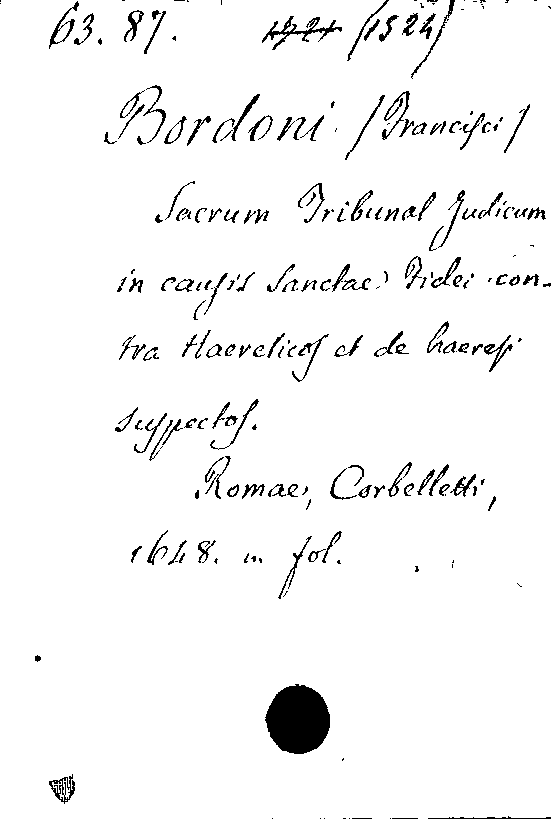 63. 87. 1721 (1524)
Bordoni. /Francisci/
Sacrum Tribunal Judicum
in causis Sanctae Fidei con-
tra Haereticos et de haeresi
suspectos.
Romae, Corbelletti,
1648. in fol.